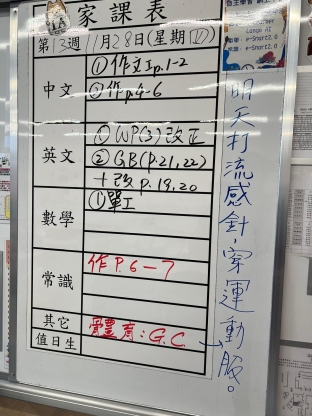 家課表
第13週 11月28日(星期四)
中文 ①作文工p.1-2
②作p.4-6
英文 ①WP(3)改正
②GB(p.21,22)
+改p.19,20
數學 ①單工
常識 作P.6-7
其它 體育:G.C →
值日生
明天打流感針,穿運動服。
eSmart2.0
eSmart2.0